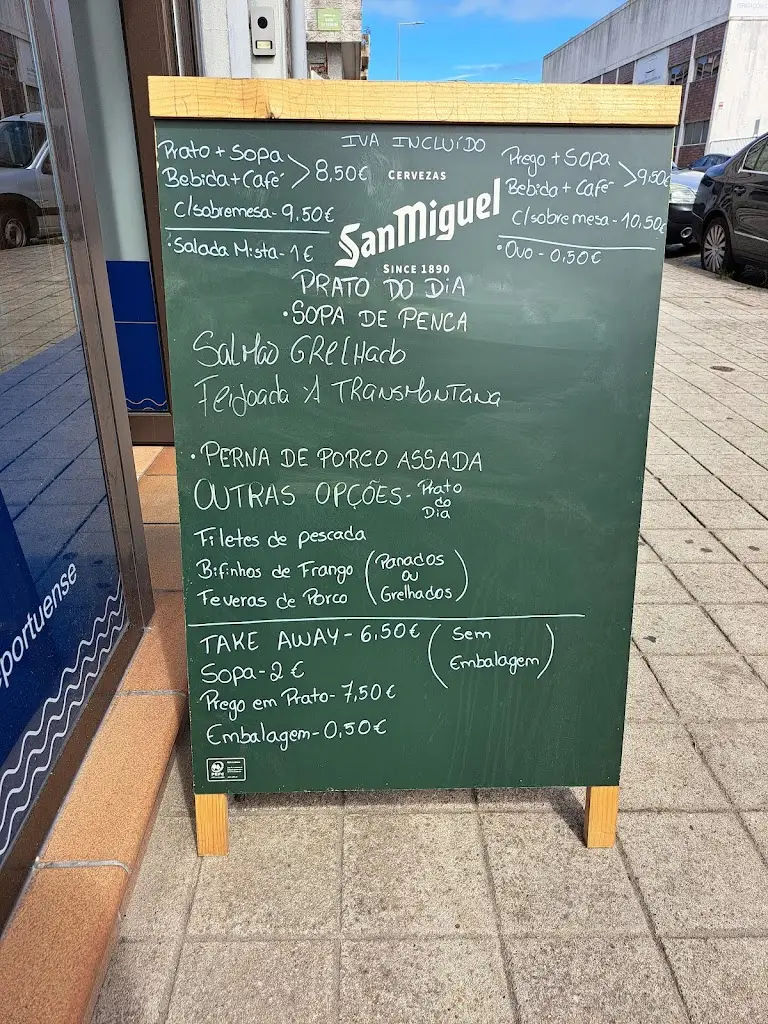 IVA INCLUÍDO
Prato + Sopa
Bebida + Café > 8,50€
C/sobremesa - 9,50€
• Salada Mista - 1€
CERVEZAS
San Miguel
SINCE 1890
Prego + Sopa
Bebida + Café > 9,50€
C/sobremesa - 10,50€
• Ovo - 0,50€
PRATO DO DIA
• SOPA DE PENCA
Salmão GRelHado
Feijoada À TRANSMONTANA
• PERNA DE PORCO ASSADA
OUTRAS OPÇÕES - Prato do Dia
Filetes de pescada
Bifinhos de Frango (Panados
ou
Feveras de Porco Grelhados)
TAKE AWAY - 6,50€ (Sem
Embalagem)
Sopa - 2 €
Prego em Prato - 7,50€
Embalagem - 0,50€
portuense